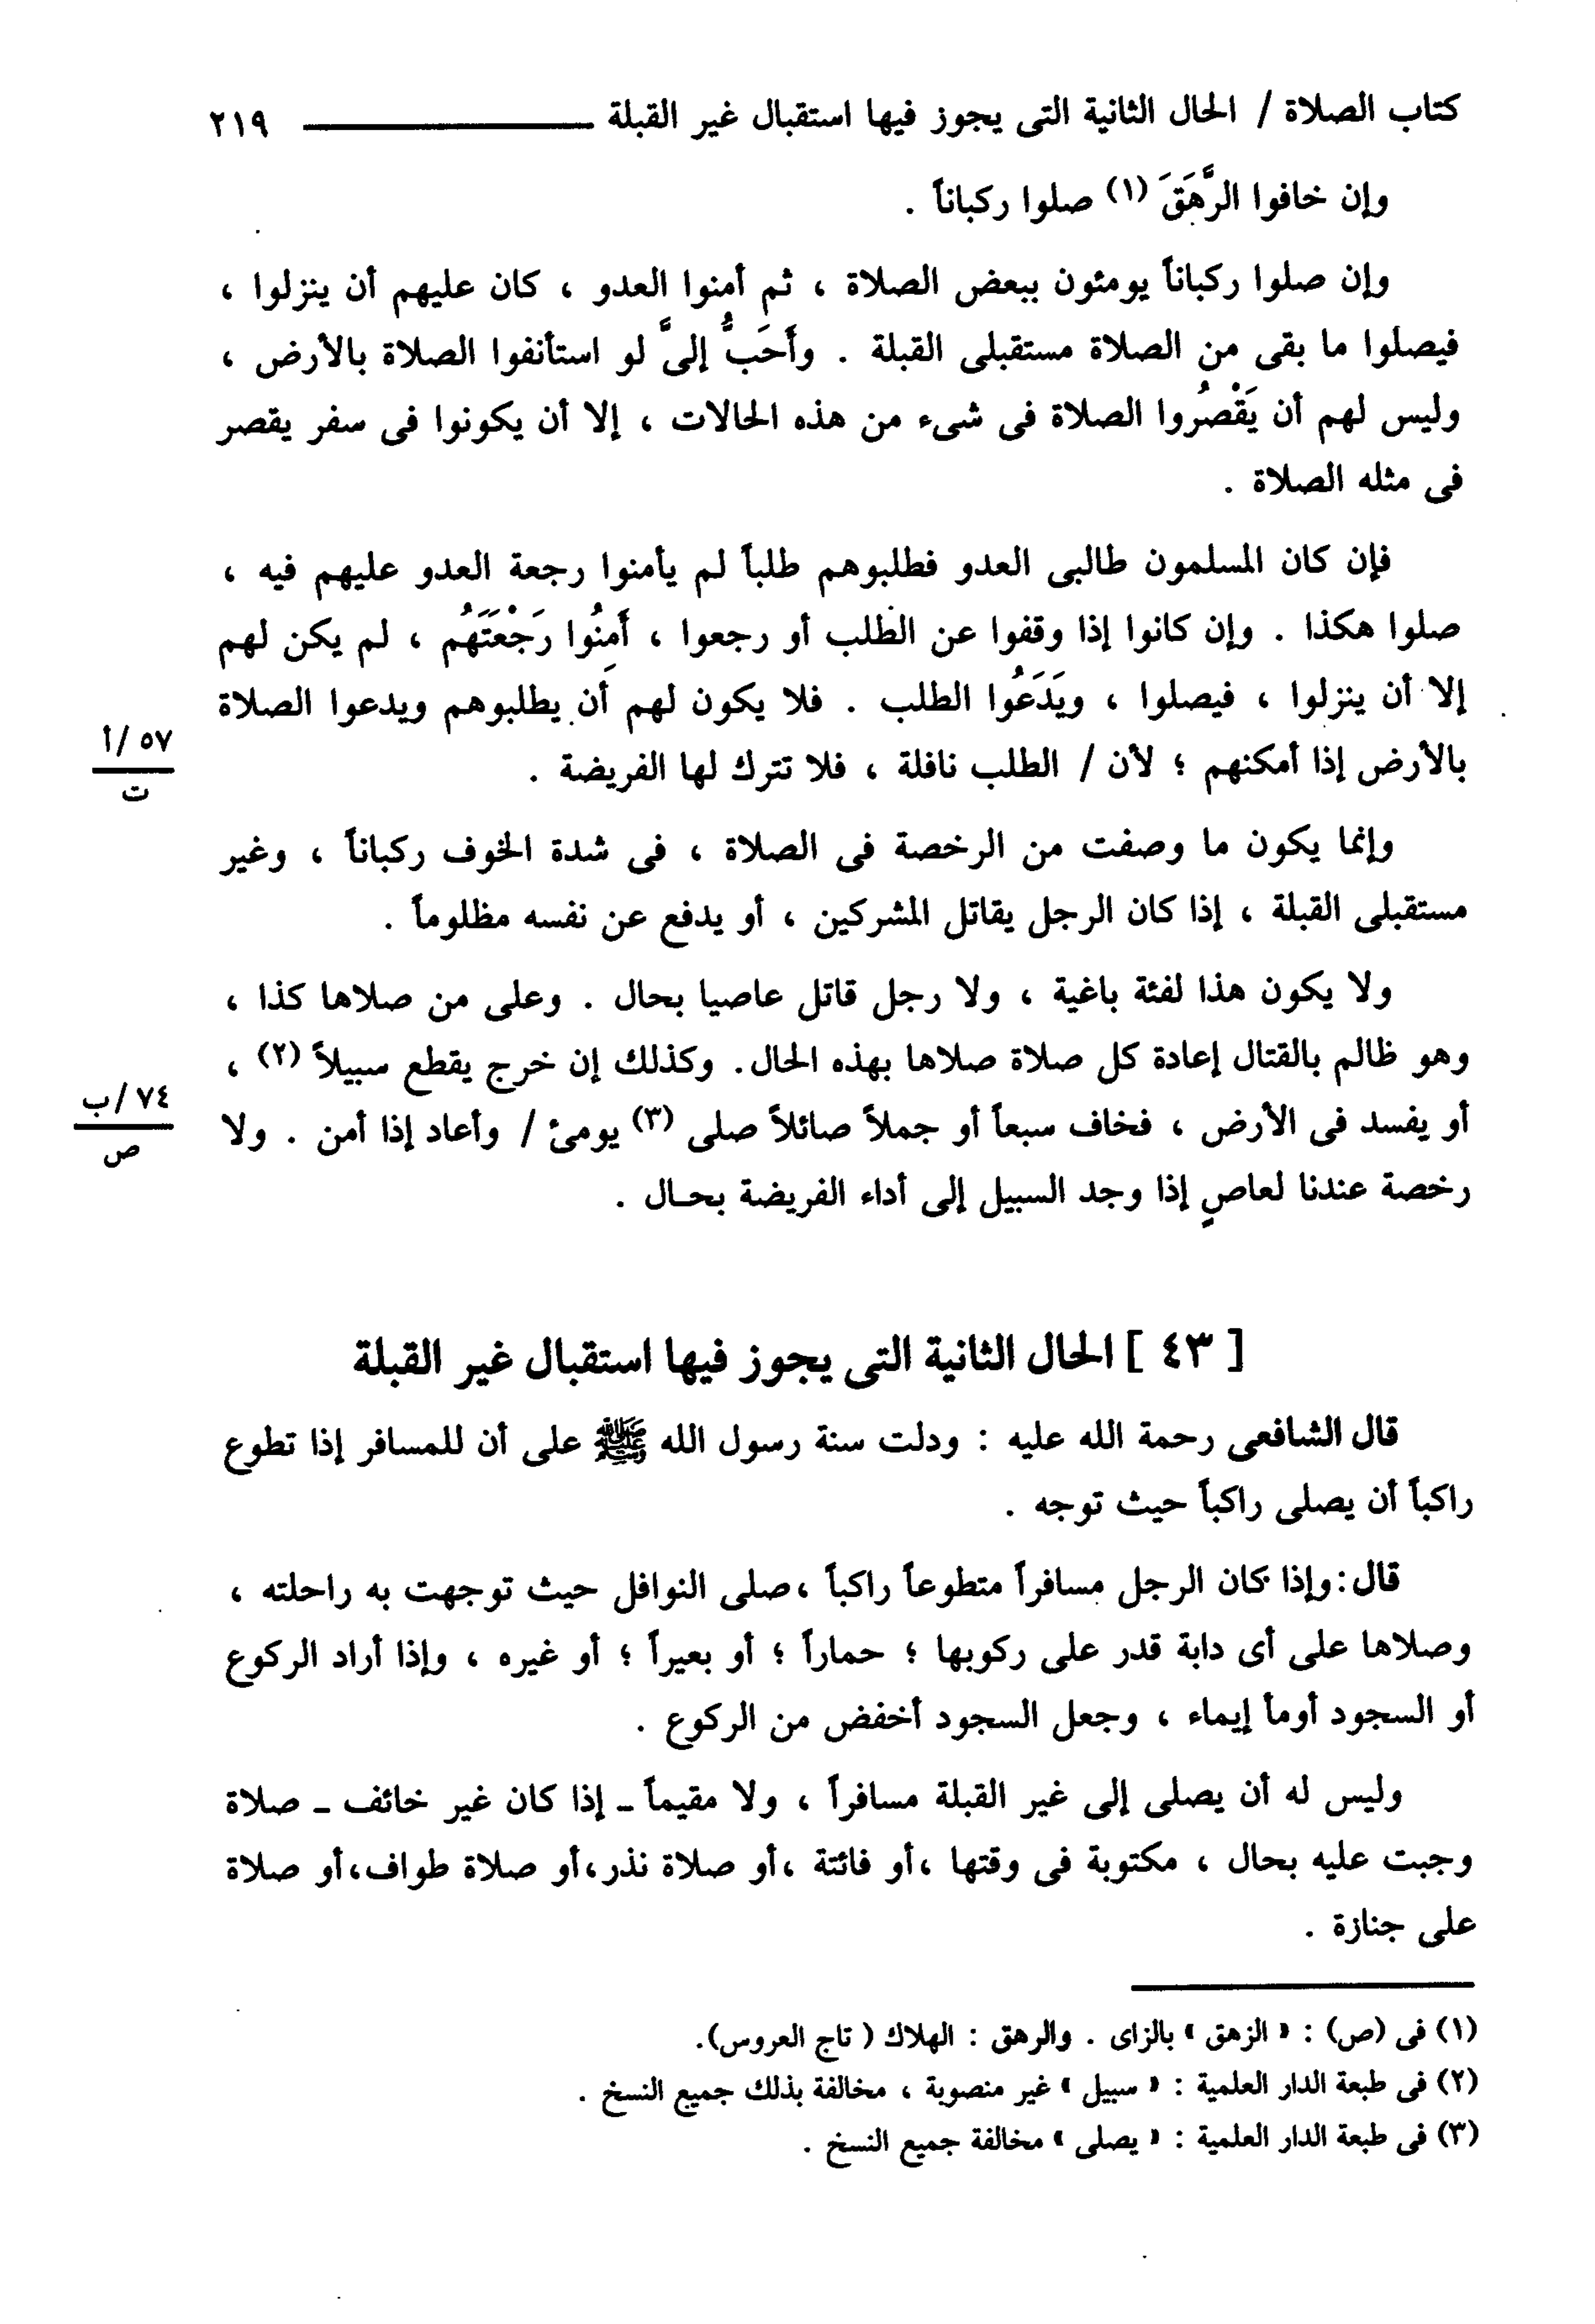 كتاب الصلاة / الحال الثانية التى يجوز فيها استقبال غير القبلة ٢١٩
وإن خافوا الرَّهَقَ (١) صلوا ركباناً .
وإن صلوا ركباناً يومئون ببعض الصلاة ، ثم أمنوا العدو ، كان عليهم أن ينزلوا ،
فيصلوا ما بقى من الصلاة مستقبلى القبلة . وأَحَبُّ إلىَّ لو استأنفوا الصلاة بالأرض ،
وليس لهم أن يَقْصُروا الصلاة فى شىء من هذه الحالات ، إلا أن يكونوا فى سفر يقصر
فى مثله الصلاة .
فإن كان المسلمون طالبى العدو فطلبوهم طلباً لم يأمنوا رجعة العدو عليهم فيه ،
صلوا هكذا . وإن كانوا إذا وقفوا عن الطلب أو رجعوا ، أَمِنُوا رَجْعَتَهُم ، لم يكن لهم
إلا أن ينزلوا ، فيصلوا ، ويَدَعُوا الطلب . فلا يكون لهم أن يطلبوهم ويدعوا الصلاة
بالأرض إذا أمكنهم ؛ لأن / الطلب نافلة ، فلا تترك لها الفريضة .
٥٧ /أ
ت
وإنما يكون ما وصفت من الرخصة فى الصلاة ، فى شدة الخوف ركباناً ، وغير
مستقبلى القبلة ، إذا كان الرجل يقاتل المشركين ، أو يدفع عن نفسه مظلوماً .
ولا يكون هذا لفئة باغية ، ولا رجل قاتل عاصيا بحال . وعلى من صلاها كذا ،
وهو ظالم بالقتال إعادة كل صلاة صلاها بهذه الحال. وكذلك إن خرج يقطع سبيلاً (٢) ،
أو يفسد فى الأرض ، فخاف سبعاً أو جملاً صائلاً صلى (٣) يومئ / وأعاد إذا أمن . ولا
٧٤ /ب
ص
رخصة عندنا لعاصٍ إذا وجد السبيل إلى أداء الفريضة بحـال .
[ ٤٣ ] الحال الثانية التى يجوز فيها استقبال غير القبلة
قال الشافعى رحمة الله عليه : ودلت سنة رسول الله ﷺ على أن للمسافر إذا تطوع
راكباً أن يصلى راكباً حيث توجه .
قال:وإذا كان الرجل مسافراً متطوعاً راكباً ،صلى النوافل حيث توجهت به راحلته ،
وصلاها على أى دابة قدر على ركوبها ؛ حماراً ؛ أو بعيراً ؛ أو غيره ، وإذا أراد الركوع
أو السجود أومأ إيماء ، وجعل السجود أخفض من الركوع .
وليس له أن يصلى إلى غير القبلة مسافراً ، ولا مقيماً ـ إذا كان غير خائف ـ صلاة
وجبت عليه بحال ، مكتوبة فى وقتها ،أو فائتة ،أو صلاة نذر،أو صلاة طواف،أو صلاة
على جنازة .
(١) فى (ص) : « الزهق » بالزاى . والرهق : الهلاك ( تاج العروس).
(٢) فى طبعة الدار العلمية : « سبيل » غير منصوبة ، مخالفة بذلك جميع النسخ .
(٣) فى طبعة الدار العلمية : « يصلى » مخالفة جميع النسخ .